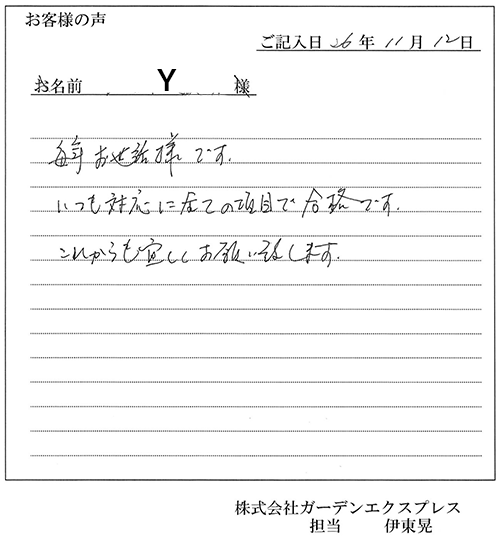 お客様の声
ご記入日 26年 11月 12日
お名前 Y 様
毎年お世話様です.
いつも対応に全ての項目で合格です.
これからも宜しくお願い致します.
株式会社ガーデンエクスプレス
担当 伊東晃